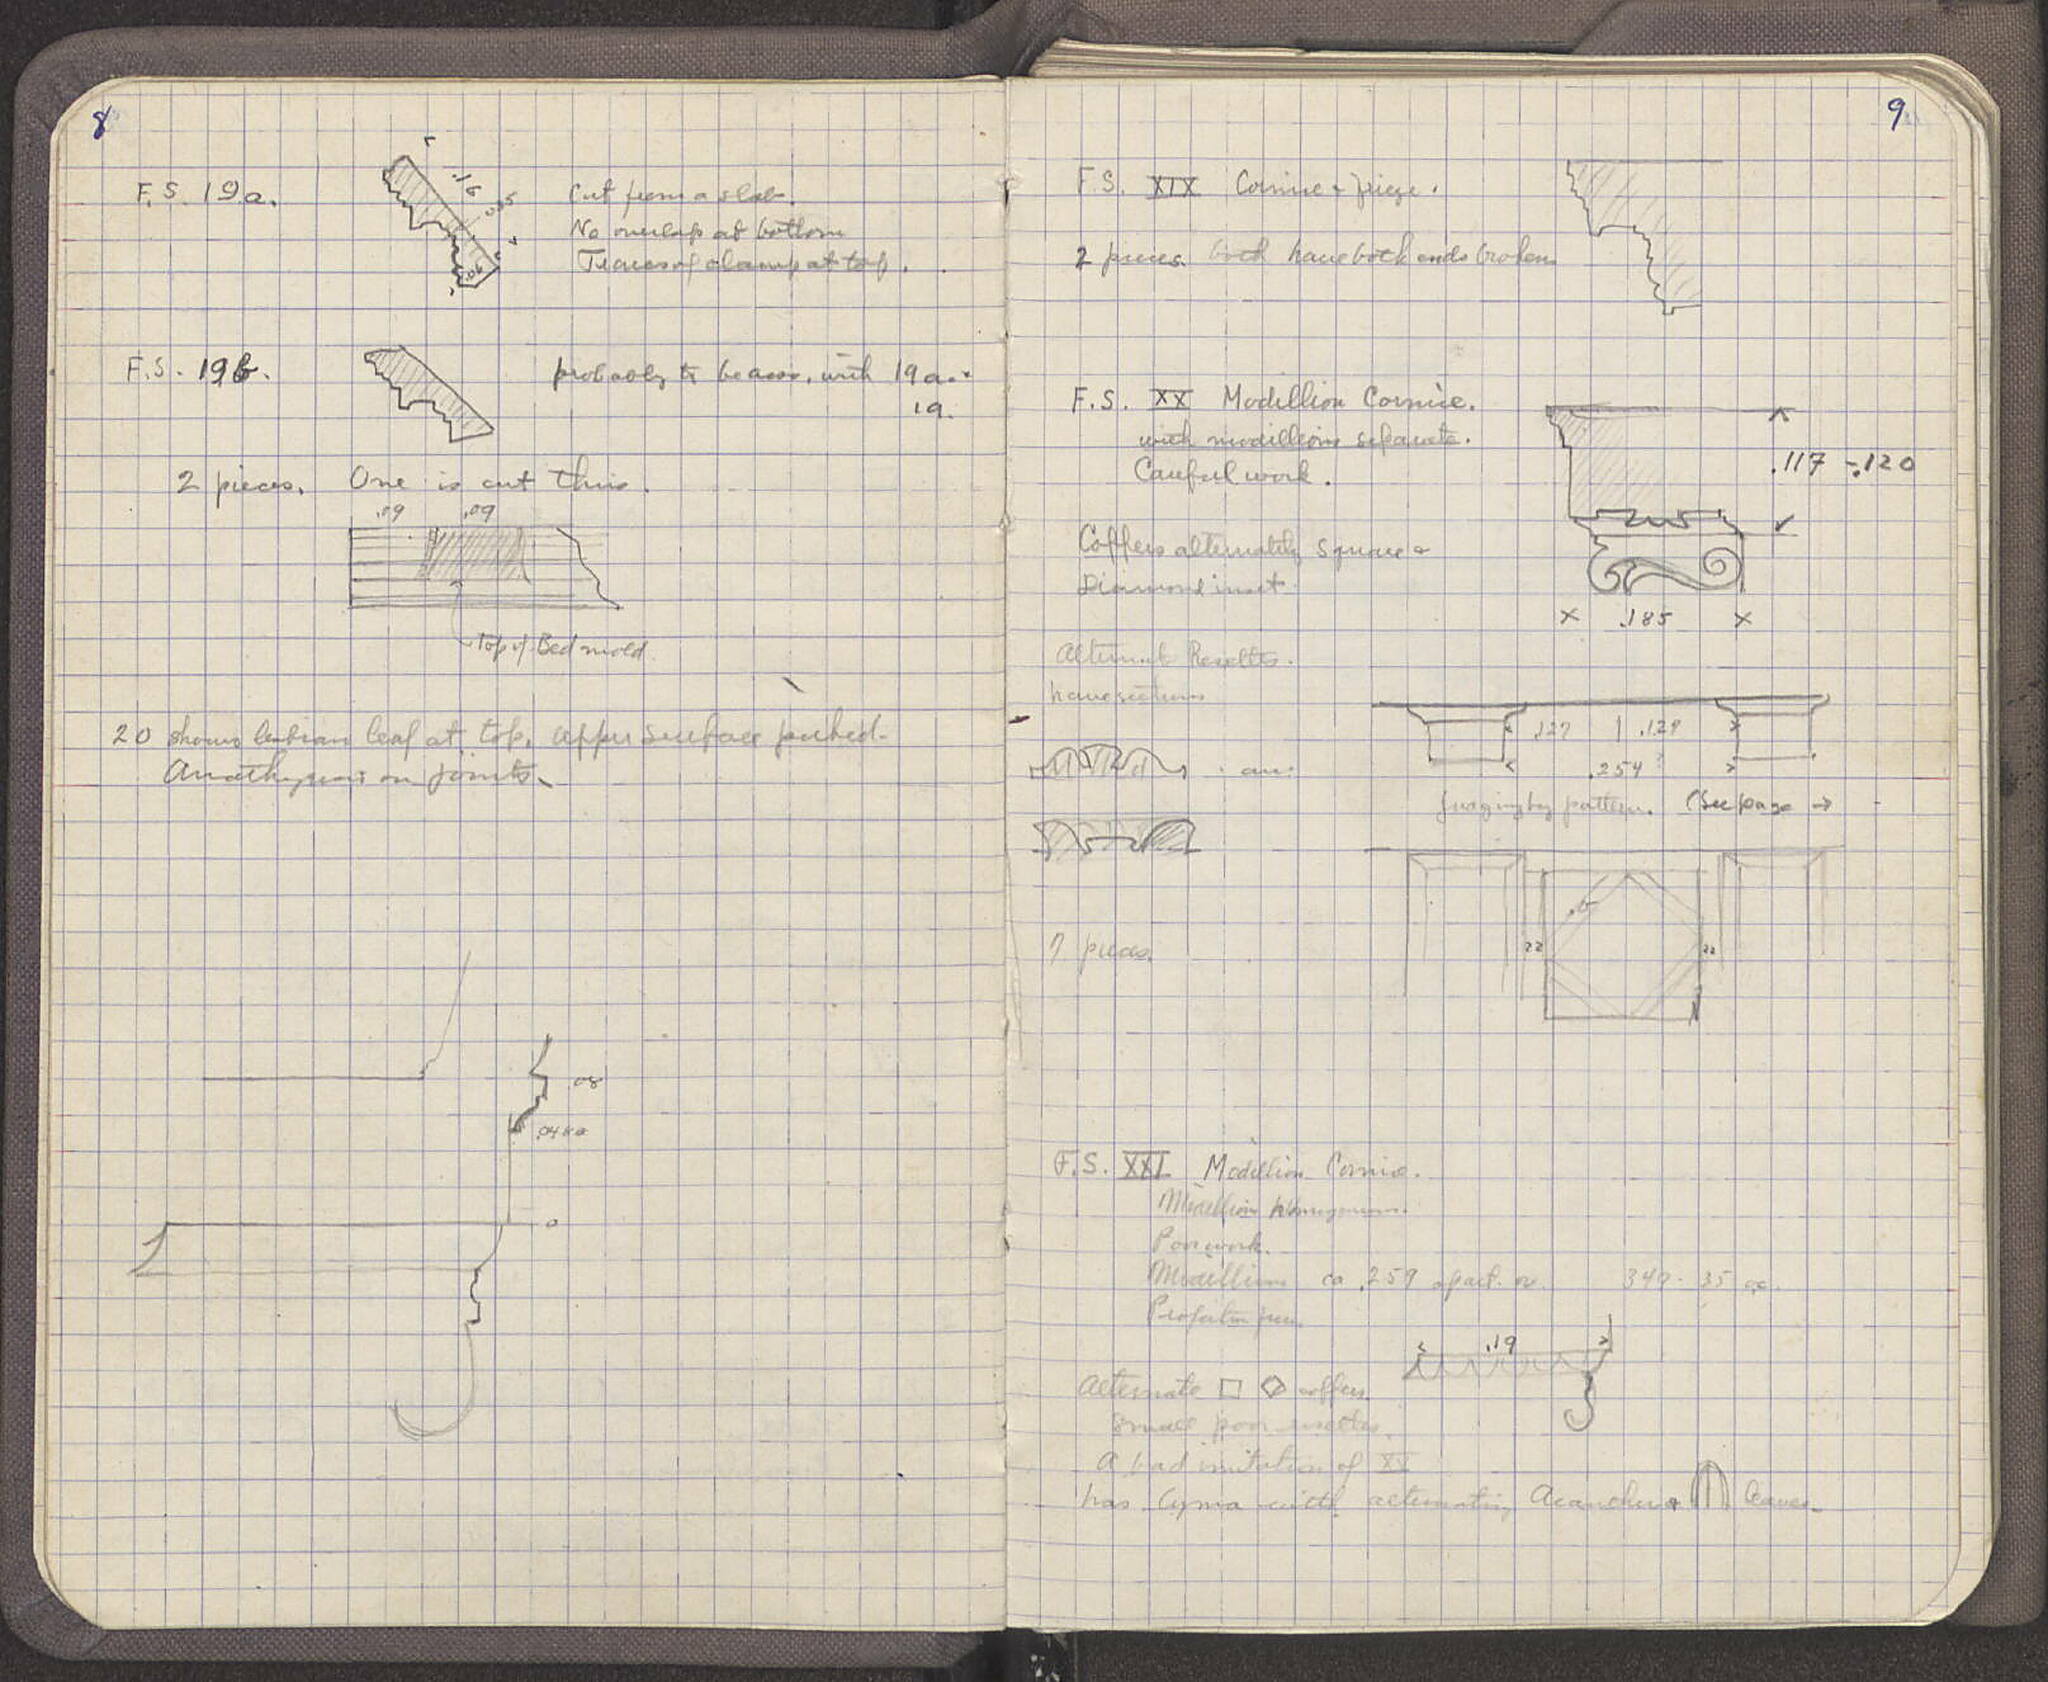 8
F.S. 19a.
.16
.035
.06
Cut from a slab.
No overlap at bottom
Traces of clamp at top.
F.S. 19b.
probably to be assoc. with 19a.
19.
2 pieces. One is cut thus.
.09 .09
Top of Bed mold
20 shows lesbian leaf at top, upper surface picked.
Anathyrosis on joints.
.08
.048
0
9
F.S. XIX Cornice + frieze.
2 pieces. both have both ends broken
F.S. XX Modillion Cornice.
with modillions separate.
Careful work.
.117 - .120
Coffers alternately square &
Diamond inset.
.185
Alternate Rosettes.
have sections
.127 | .129
.254
Judging by pattern. (See page →
22 22
7 pieces.
F.S. XXI Modillion Cornice.
Modillion
Poor work.
Modillions ca .259 apart. or 340 - 35
.19
Alternate □ ◇ coffers
Small poor rosettes.
A bad imitation of XX
has Cyma with alternating Acanthus & leaves.